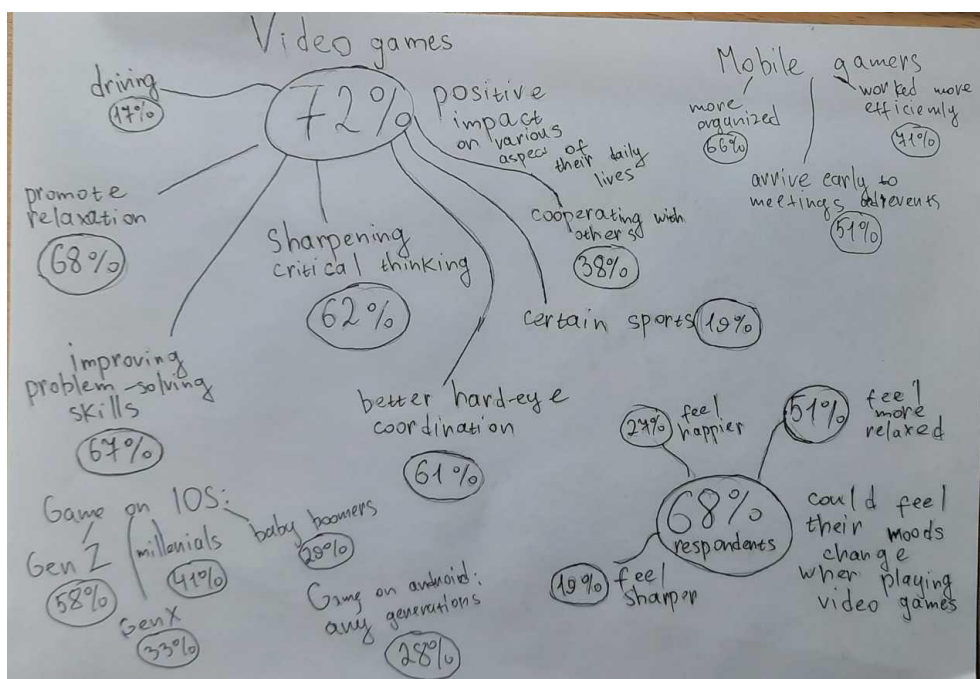 Video games
72%
positive
impact
on various
aspect of
their daily
lives
driving
17%
promote
relaxation
68%
improving
problem-solving
skills
67%
Sharpening
critical thinking
62%
better hard-eye
coordination
61%
certain sports 19%
cooperating with
others
38%
Mobile gamers
more
organized
66%
arrive early to
meetings and events
51%
worked more
efficiemly
71%
Game on IOS:
Gen Z
58%
GenX
33%
millenials
41%
baby boomers
29%
Game on android:
any generations
28%
68%
respondents
could feel
their moods
change
wher playing
video games
27% feel
happier
51% feel
more
relaxed
19% feel
sharper